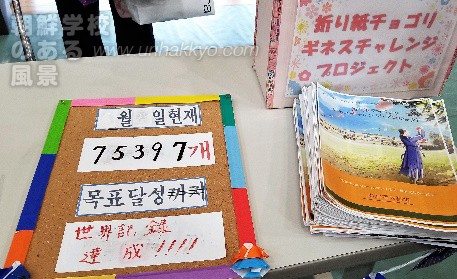 朝鮮学校
のある
風景
www.urihakkyo.com
折り紙チョゴリ
ギネスチャレンジ
プロジェクト
월 일현재
75397개
목표달성까지
世界記録
達成!!!!